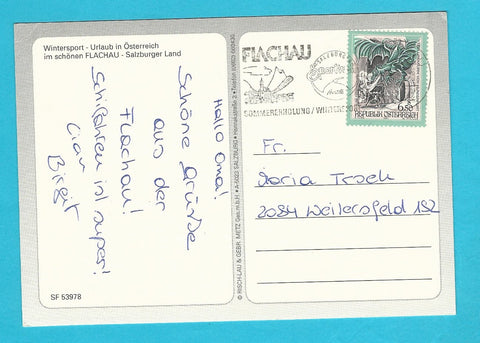 Wintersport - Urlaub in Österreich
im schönen FLACHAU - Salzburger Land
Hallo Oma!
Schöne Grüße
aus der
Flachau!
Schifahren ist super!
Ciao
Birgit
SF 53978
© RISCH-LAU & GEBR. METZ Ges.m.b.H. • A-5023 SALZBURG •
FLACHAU
SOMMERERHOLUNG/
6.50
REPUBLIK ÖSTERREICH
Fr.
Maria Trsek
2084 Weitersfeld 182